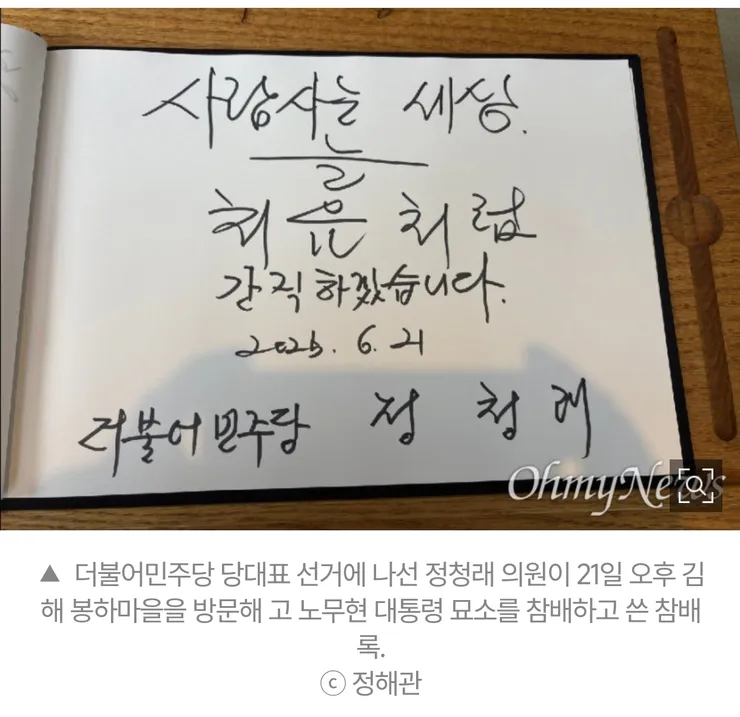 사람사는 세상.
늘
처음 처럼
간직하겠습니다.
2025. 6. 21
더불어민주당 정 청 래
OhmyNews
▲ 더불어민주당 당대표 선거에 나선 정청래 의원이 21일 오후 김
해 봉하마을을 방문해 고 노무현 대통령 묘소를 참배하고 쓴 참배
록.
ⓒ 정해관